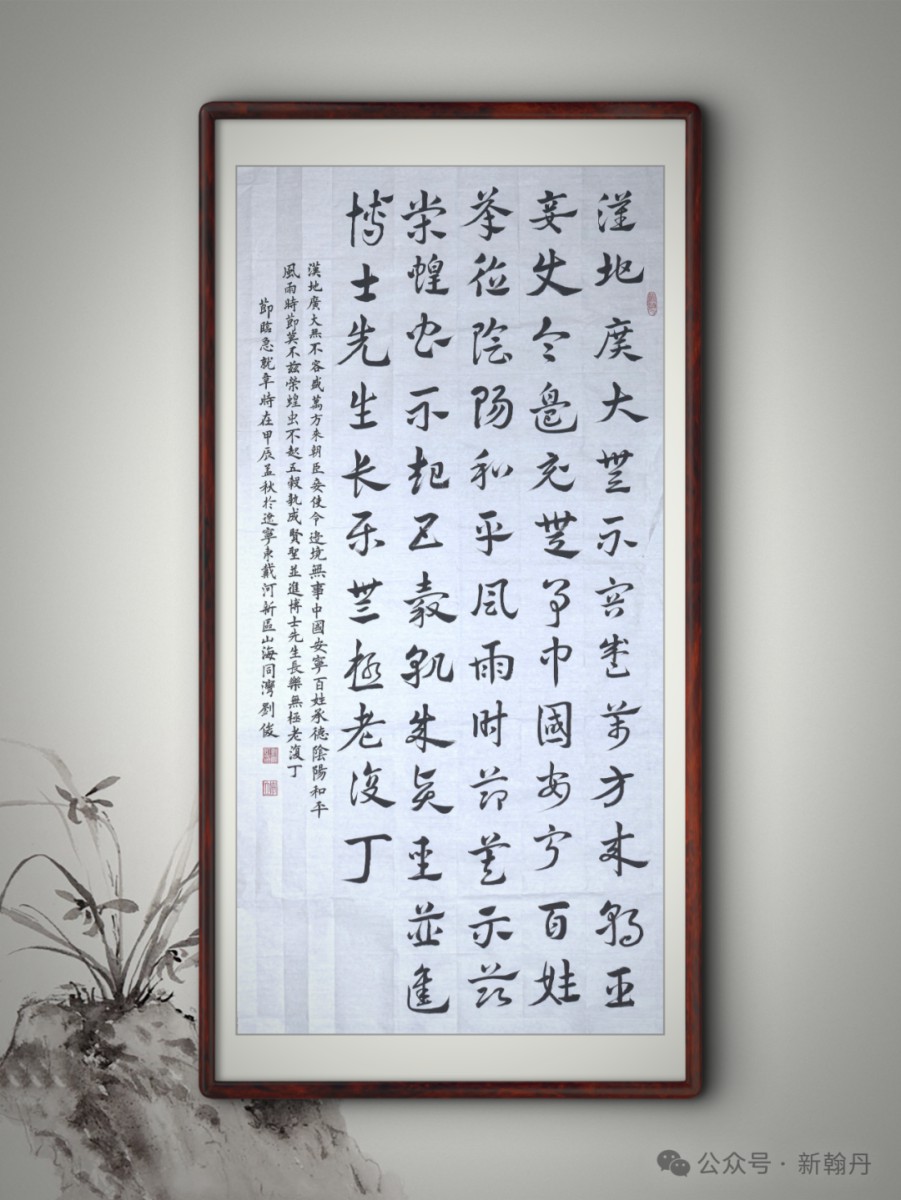 漢地廣大無不容盛萬方來朝臣
妾使令邊境無事中國安寧百姓
承德陰陽和平風雨時節莫不茲
榮蝗虫不起五穀孰成賢聖並進
博士先生長樂無極老復丁
漢地廣大無不容盛萬方來朝臣妾使令邊境無事中國安寧百姓承德陰陽和平
風雨時節莫不茲榮蝗虫不起五穀孰成賢聖並進博士先生長樂無極老復丁
節臨急就章時在甲辰孟秋於遼寧東戴河新區山海同灣劉俊
公众号·新翰丹